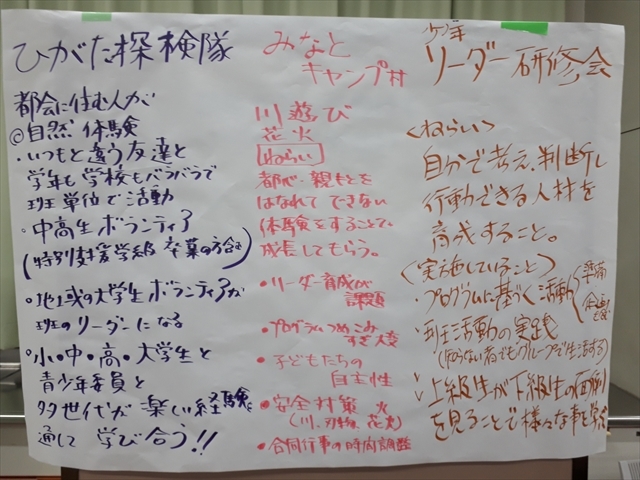 ひがた探検隊
都会に住む人が
◎自然 体験
・いつもと違う友達と
学年も学校もバラバラで
班単位で活動
・中高生ボランティア
(特別支援学級 卒業の方含む)
・地域の大学生ボランティアが
班のリーダーになる
・小・中・高・大学生と
青少年委員と
多世代が楽しい経験を
通して 学び合う!!
みなと
キャンプ村
川遊び
花火
ねらい
都心・親もとを
はなれて できない
体験をすることで、
成長してもらう。
・リーダー育成が
課題
・プログラムつめこみ
すぎ 大変
・子どもたちの
自主性
・安全対策 火
(川、刃物、花火)
・合同行事の時間調整
少年
リーダー研修会
<ねらい>
自分で考え、判断し
行動できる人材を
育成すること。
<実施していること>
・プログラムに基づく活動
準備
・班活動の実践
(知らない者でもグループで生活する)
・上級生が下級生の面倒
を見ることで様々な事を学ぶ